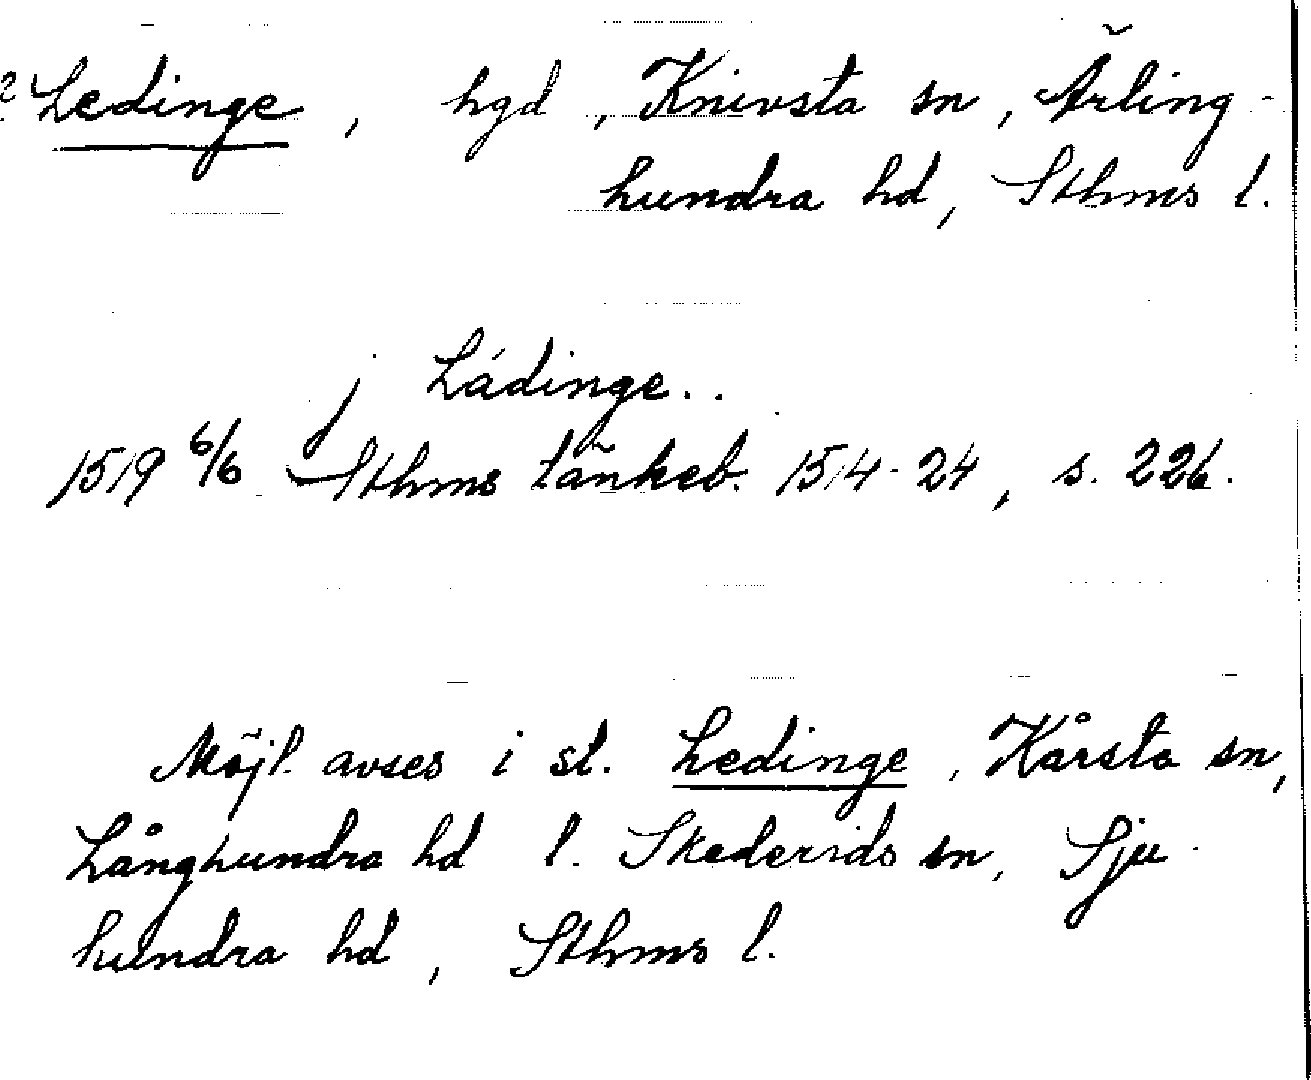 ? Ledinge, hgd, Knivsta sn, Ärling-
hundra hd, Sthms l.
j Ládinge..
1519 6/6 Sthms tänkeb. 1514-24, s. 226.
Möjl. avses i st. Ledinge, Kårsta sn,
Långhundra hd l. Skederids sn, Sju-
hundra hd, Sthms l.